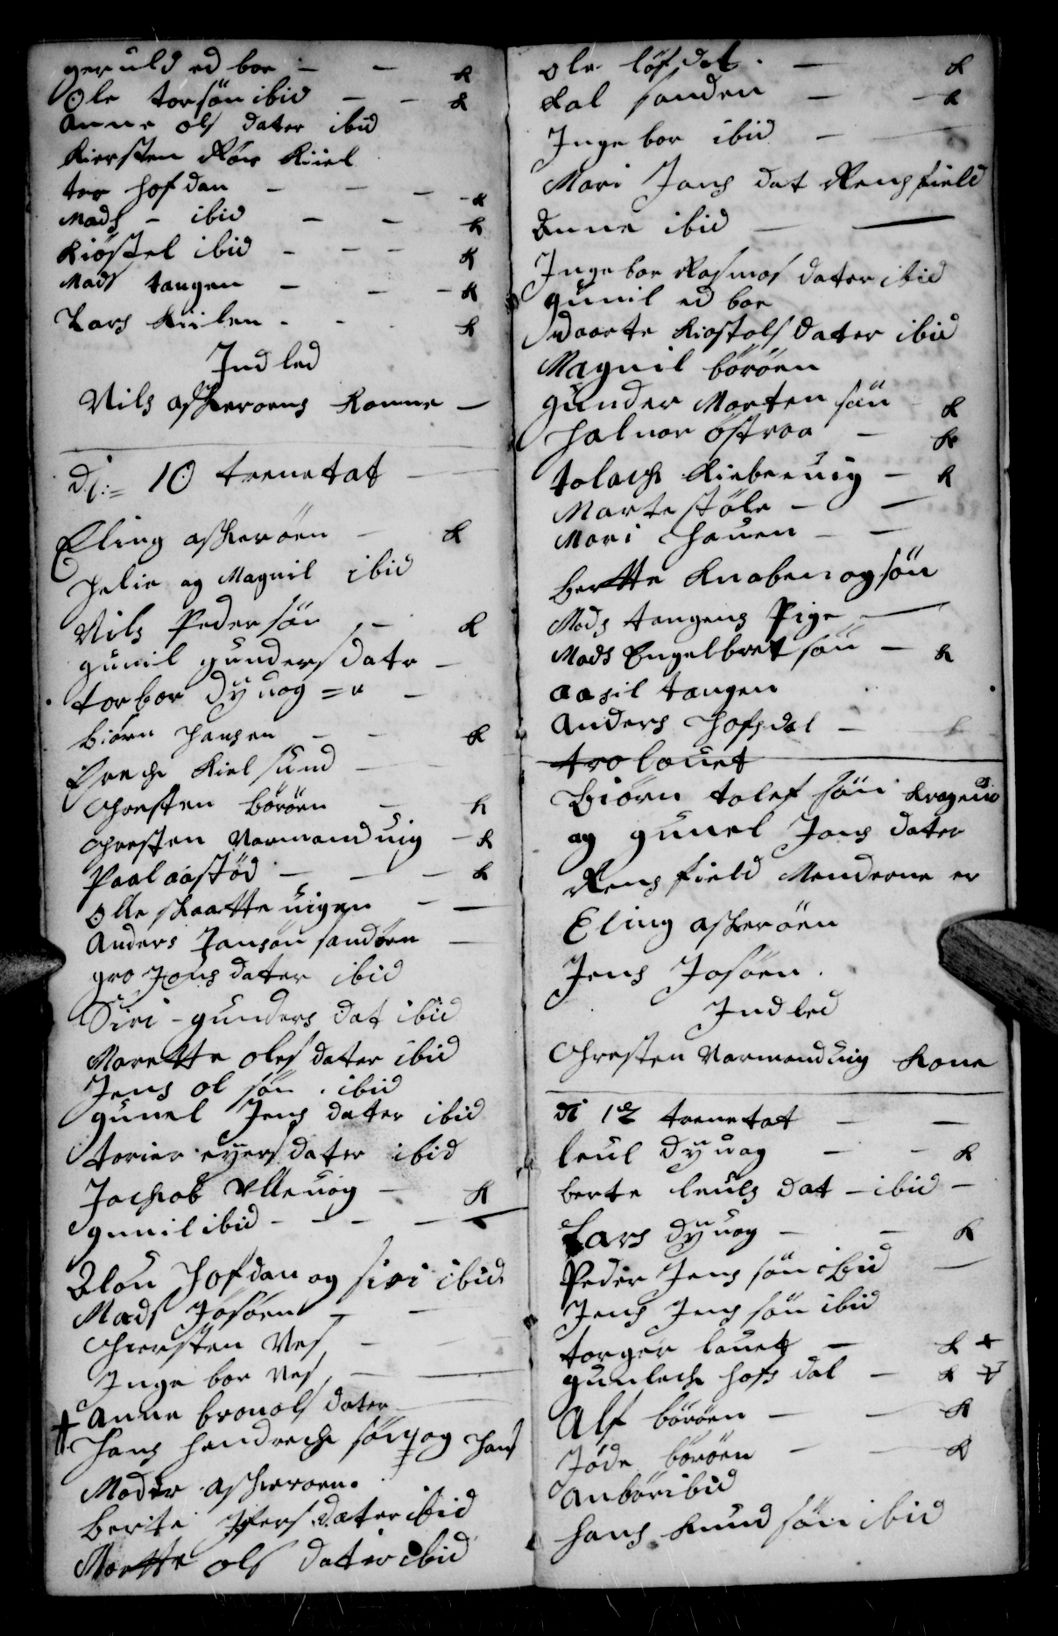 geruld ed boe — — K
Ole torsön ibid — — K
Anne ols dater ibid
Kiersten
ter hofdan — — — K
Mads — ibid — — K
Kiöstel ibid — — — K
Mads tangen — — — K
Lars Kiilen — K
Indled
Nils askeroens Konne —
di: 10 trenetat —
Eling askeröen — K
helie og Magnil ibid
Nils Pedersön — K
gunil gunders datr —
torbor dÿuog —
Biörn Hansen — — K
Kielsund —
Christen börøen — K
Christen Narmanduig — K
Paal aastöd — — — K
Olle skaatte uigen — —
Anders Jansön sandöen —
gro Jons dater ibid
Siri gunders dat ibid
Marette oles datter ibid
Jens ol sön ibid
gunel Jens dater ibid
torier eyers dater ibid
Jachob Ulleuog — K
gunil ibid — — — —
Olou Hofdan og siri ibid
Mads Josöen — —
Chiersten Nes —
Ingebor Nes —
Anne bronols dater
Hans hendrech sön og hans
Moder askeroen.
Berte Ifers dater ibid
Marette ols dater ibid
Ole löfdal — K
Kal sanden — — K
Ingebor ibid —
Mari Jans dat Rensfield
Anne ibid — —
Ingebor Rasmos dater ibid
gunil ed boe
daarte Kiostols dater ibid
Magnil böröen
gunder Morten sön K
haluor östraa — K
tolach Kieberuig — K
Marte stöle — —
Mari Hauen — —
Berthe Knaben og sön
Mads tangens Pige —
Mads Engelbret sön — K
aasil tangen
Anders Hofsdal — K
trolouet
Biörn tolef sön Krogeuig
og gunel Jans datter
Rensfield Mendrene er
Eling askeröen
Jens Josöen.
Indled
Christen Narmanduig Kone
di 12 trenetat — —
leul dÿuog — — K
berte leuls dat — ibid —
Lars dÿuog — — K
Peder Jens sön ibid —
Jens Jens sön ibid
torger louets — K +
gunlech hofs dal — K +
Alf böröen — — K
Jöde böröen — — K
Anbör ibid
hans Knud sön ibid